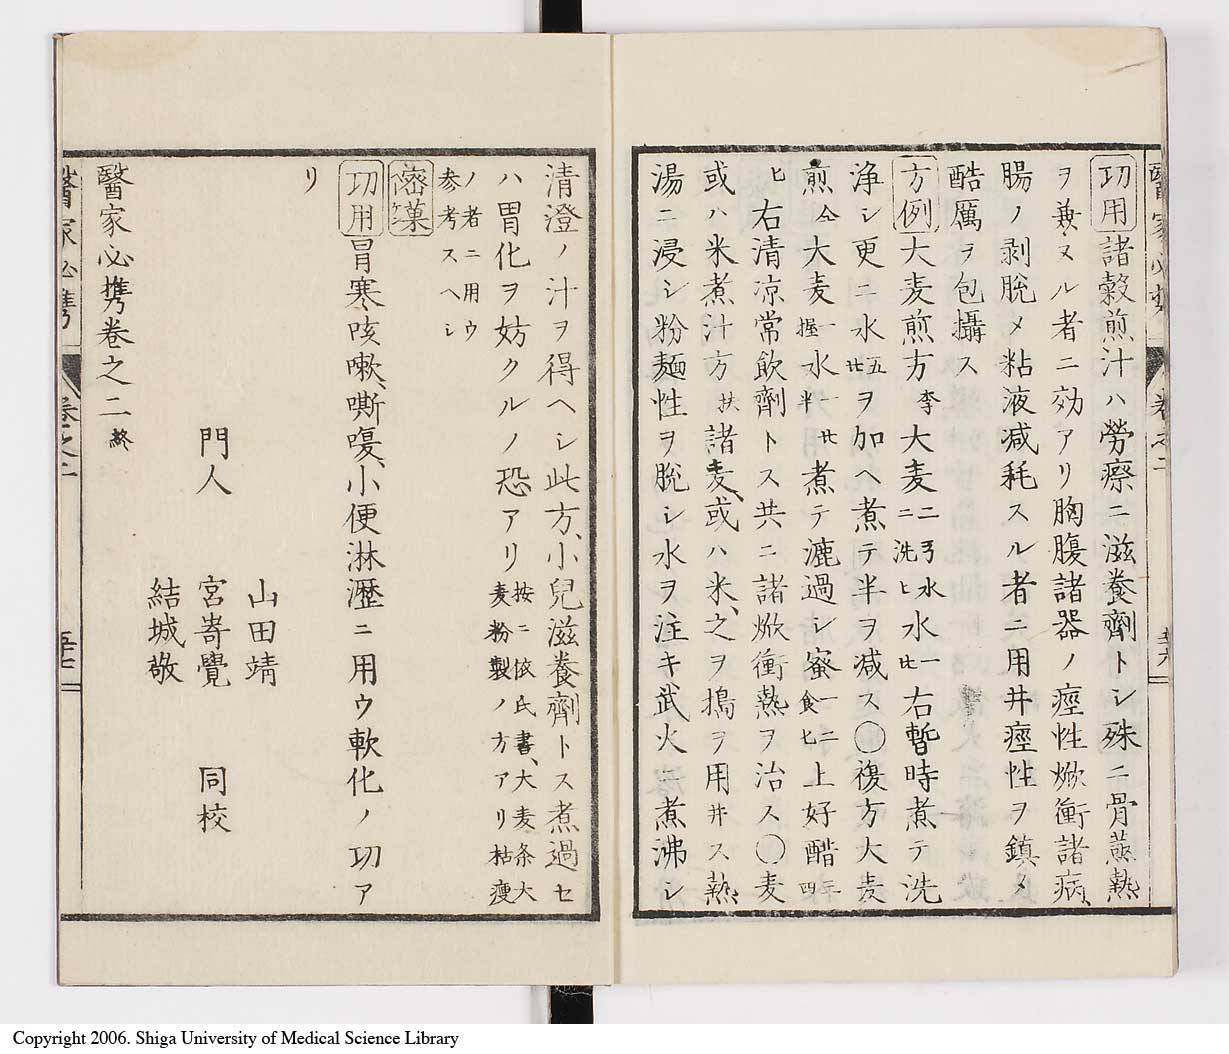 功用諸穀煎汁ハ勞瘵ニ滋養劑トシ殊ニ骨蒸熱
ヲ兼ヌル者ニ効アリ胸腹諸器ノ痙性焮衝諸病、
腸ノ剥脱メ粘液減耗スル者ニ用井痙性ヲ鎮メ
酷厲ヲ包攝ス
方例大麦煎方李大麦二弓水ニ洗ヒ水一右暫時煮テ洗
浄シ更ニ水五ヲ加ヘ煮テ半ヲ減ス○複方大麦
煎仝大麦一握水半煮テ漉過シ蜜一二食匕上好醋三四
匕右清凉常飲劑トス共ニ諸焮衝熱ヲ治ス○麦
或ハ米煮汁方扶諸麦、或ハ米、之ヲ搗ヲ用井ス熱
湯ニ浸シ粉麺性ヲ脱シ水ヲ注キ武火ニ煮沸シ
清澄ノ汁ヲ得ヘシ此方、小兒滋養劑トス煮過セ
ハ胃化ヲ妨クルノ恐アリ按ニ依氏書、大麦条大麦粉製ノ方アリ枯痩
ノ者ニ用ウ参考スヘシ
功用冒寒咳嗽、嘶嗄、小便淋瀝ニ用ウ軟化ノ功ア
リ
山田靖
門人 宮嵜覺 同校
結城敬
醫家必携巻之二終
醫家必携 巻之二